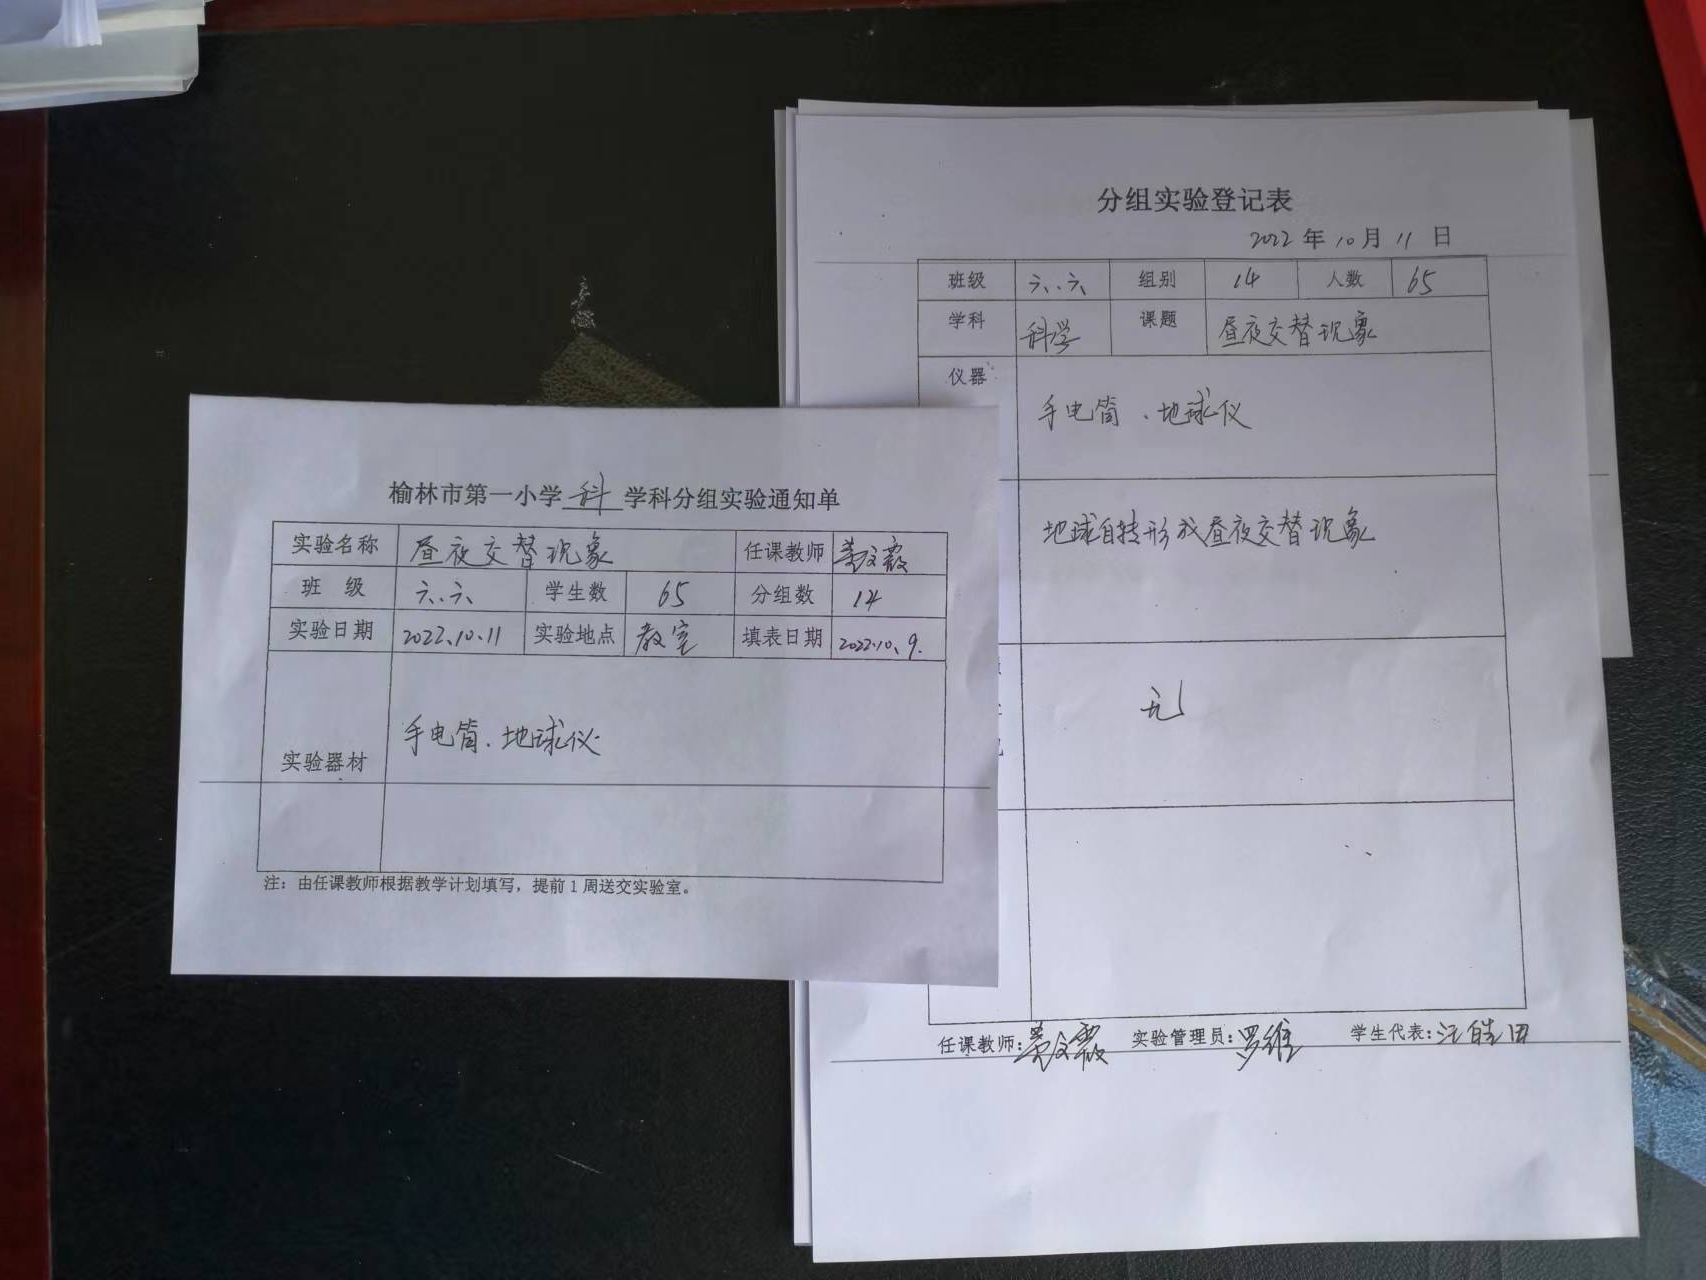 榆林市第一小学 科 学科分组实验通知单
实验名称 昼夜交替现象 任课教师
班 级 六.六 学生数 65 分组数 14
实验日期 2022.10.11 实验地点 教室 填表日期 2022.10.9.
手电筒、地球仪
实验器材
注：由任课教师根据教学计划填写，提前1周送交实验室。
分组实验登记表
2022 年 10 月 11 日
班级 六.六 组别 14 人数 65
学科 科学 课题 昼夜交替现象
仪器
手电筒、地球仪
地球自转形成昼夜交替现象
无
任课教师： 实验管理员：罗维 学生代表：